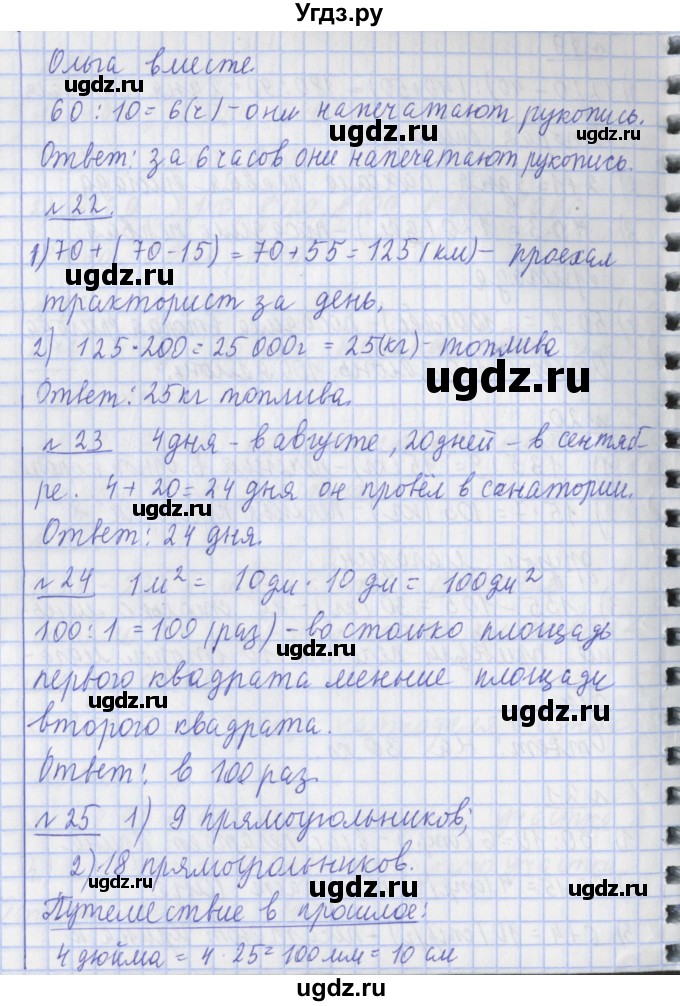 Угдз.ру
Ольга вместе.
60 : 10 = 6(ч) - они напечатают рукопись.
ugdz.ru
Ответ: за 6 часов они напечатают рукопись.
ugdz.ru
№ 22.
1) 70 + (70 - 15) = 70 + 55 = 125 (км) - проехал
ugdz.ru
тракторист за день.
ugdz.ru
2) 125 · 200 = 25 000г = 25(кг) - топлива
ugdz.ru
ugdz.ru
Ответ: 25кг топлива.
№ 23 4 дня - в августе, 20 дней - в сентяб-
ugdz.ru
ре. 4 + 20 = 24 дня он провёл в санатории.
ugdz.ru
Ответ: 24 дня.
ugdz.ru
№ 24 1м² = 10дм · 10 дм = 100дм²
100 : 1 = 100 (раз) - во столько площадь
ugdz.ru
первого квадрата меньше площади
ugdz.ru
ugdz.ru
второго квадрата.
Ответ: в 100 раз.
ugdz.ru
№ 25 1) 9 прямоугольников;
2) 18 прямоугольников.
ugdz.ru
ugdz.ru
Путешествие в прошлое:
4 дюйма = 4 · 25 = 100 мм = 10 см
ugdz.ru